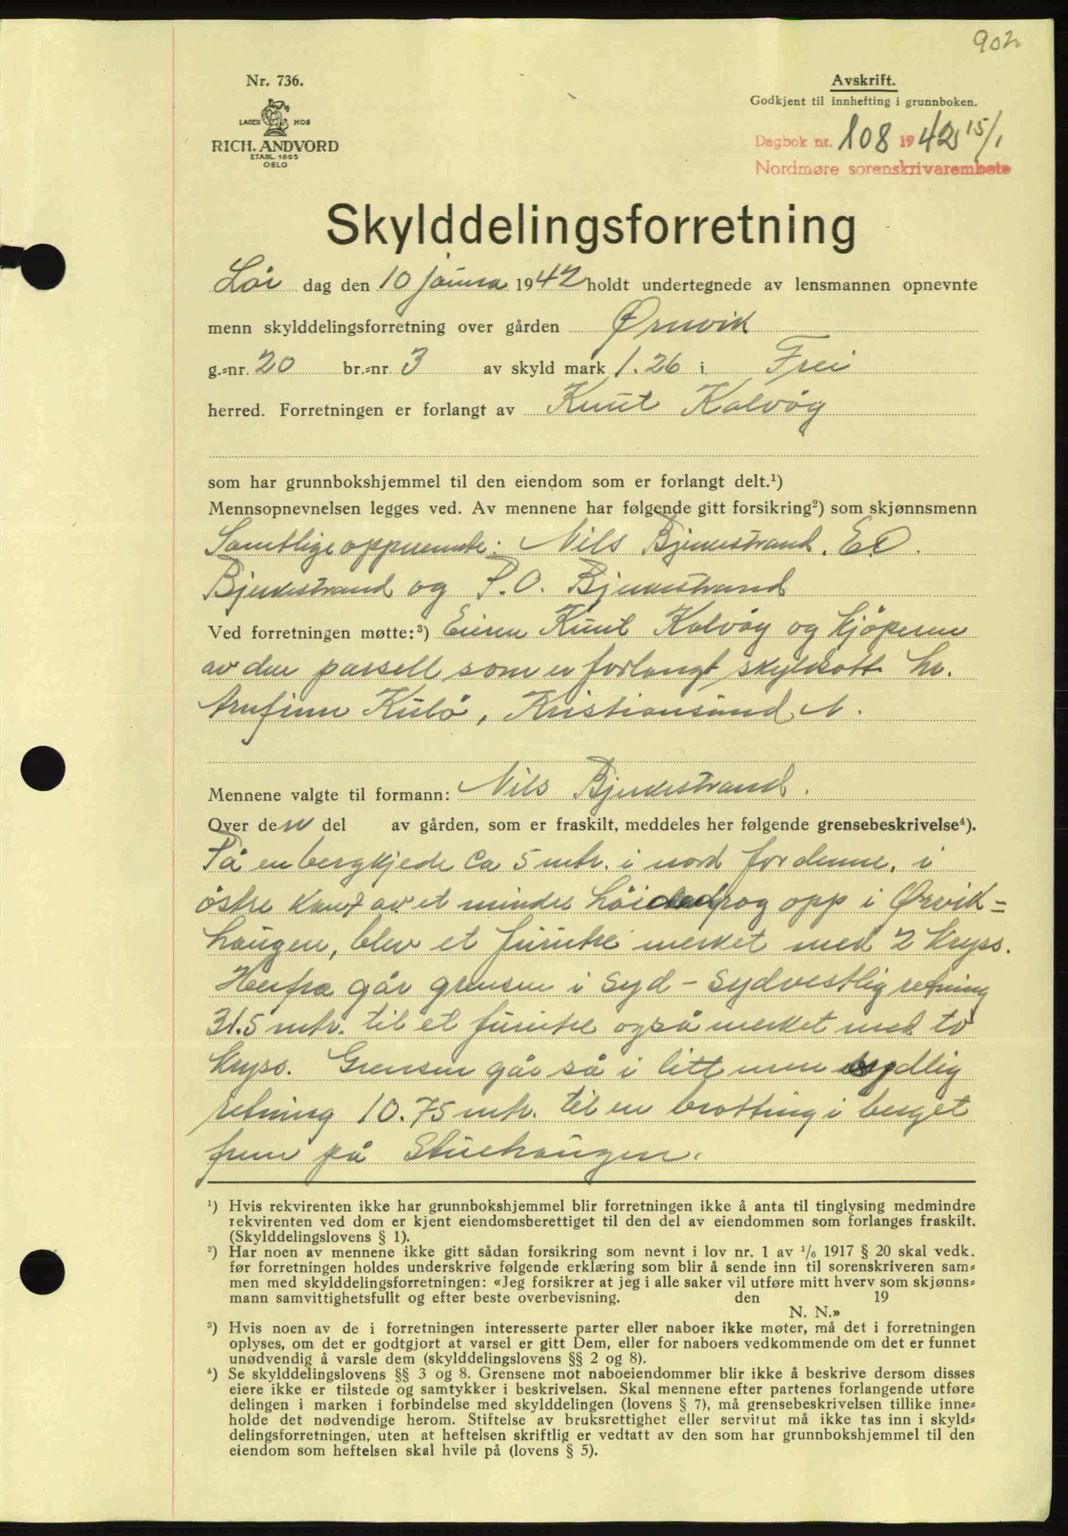 902
Nr. 736.
LAGER HOS
RICH. ANDVORD
ETABL. 1865
OSLO
Avskrift.
Godkjent til innhefting i grunnboken.
Dagbok nr. 108 1942 15/1
Nordmøre sorenskrivarembete
Skylddelingsforretning
Lør dag den 10 januar 1942 holdt undertegnede av lensmannen opnevnte
menn skylddelingsforretning over gården Ørnvik
g.=nr. 20 br.=nr. 3 av skyld mark 1.26 i Frei
herred. Forretningen er forlangt av Knut Kalvøy
som har grunnbokshjemmel til den eiendom som er forlangt delt.¹)
Mennsopnevnelsen legges ved. Av mennene har følgende gitt forsikring²) som skjønnsmenn
Samtlige oppnevnte: Nils Bjerkestrand. E.O.
Bjerkestrand og P.O. Bjerkestrand
Ved forretningen møtte:³) Eieren Knut Kalvøy og kjøperen
av den parsell som er forlangt skyldsatt hr.
Arnfinn Kulø, Kristiansund N.
Mennene valgte til formann: Nils Bjerkestrand.
Over den del av gården, som er fraskilt, meddeles her følgende grensebeskrivelse⁴).
På en bergkjede ca 5 mtr. i nord for denne, i
østre kant av et mindre høidedrog opp i Ørvik=
haugen, blev et furutre merket med 2 kryss.
Herfra går grensen i syd - sydvestlig retning
31.5 mtr. til et furutre også merket med to
kryss. Grensen går så i litt mere sydlig
retning 10.75 mtr. til en brotting i berget
frem på Stuehaugen.
¹) Hvis rekvirenten ikke har grunnbokshjemmel blir forretningen ikke å anta til tinglysing medmindre
rekvirenten ved dom er kjent eiendomsberettiget til den del av eiendommen som forlanges fraskilt.
(Skylddelingslovens § 1).
²) Har noen av mennene ikke gitt sådan forsikring som nevnt i lov nr. 1 av 1/6 1917 § 20 skal vedk.
før forretningen holdes underskrive følgende erklæring som blir å sende inn til sorenskriveren sam=
men med skylddelingsforretningen: «Jeg forsikrer at jeg i alle saker vil utføre mitt hverv som skjønns=
mann samvittighetsfullt og efter beste overbevisning. den 19
N. N.»
³) Hvis noen av de i forretningen interesserte parter eller naboer ikke møter, må det i forretningen
oplyses, om det er godtgjort at varsel er gitt Dem, eller for naboers vedkommende om det er funnet
unødvendig å varsle dem (skylddelingslovens §§ 2 og 8).
⁴) Se skylddelingslovens §§ 3 og 8. Grensene mot naboeiendommer blir ikke å beskrive dersom disses
eiere ikke er tilstede og samtykker i beskrivelsen. Skal mennene efter partenes forlangende utføre
delingen i marken i forbindelse med skylddelingen (lovens § 7), må grensebeskrivelsen tillike inne=
holde det nødvendige herom. Stiftelse av bruksrettighet eller servitut må ikke tas inn i skyld=
delingsforretningen, uten at heftelsen skriftlig er vedtatt av den som har grunnbokshjemmel til den
eiendom som heftelsen skal hvile på (lovens § 5).